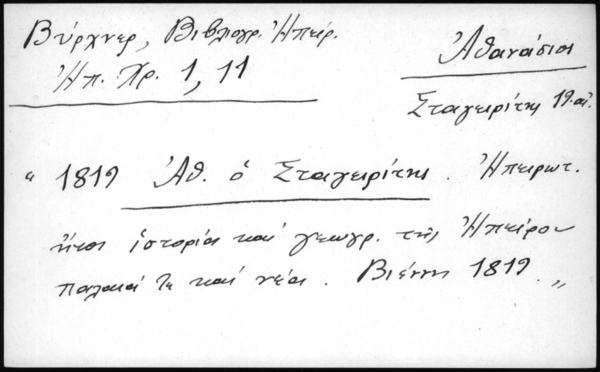 Βύρχνερ, Βιβλιογρ. Ἠπείρ.
Ἠπ. Χρ. 1, 11
Ἀθανάσιος
Σταγειρίτης 19. αἰ.
“ 1819 Ἀθ. ὁ Σταγειρίτης. Ἠπειρωτ.
ἤτοι ἱστορία καὶ γεωγρ. τῆς Ἠπείρου
παλαιά τε καὶ νέα. Βιέννη 1819. „